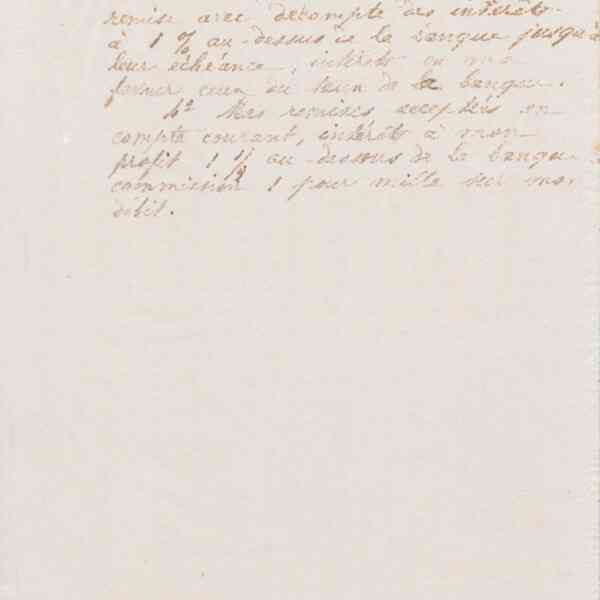 remise avec décompte des intérêts
à 1 % au-dessus de la banque jusqu'à
leur échéance, intérêts en ma
faveur ceux du taux de la banque.
4º Mes remises acceptés en
compte courant, intérêts à mon
profit 1 % au-dessus de la banque
commission 1 pour mille sur mon
débit.